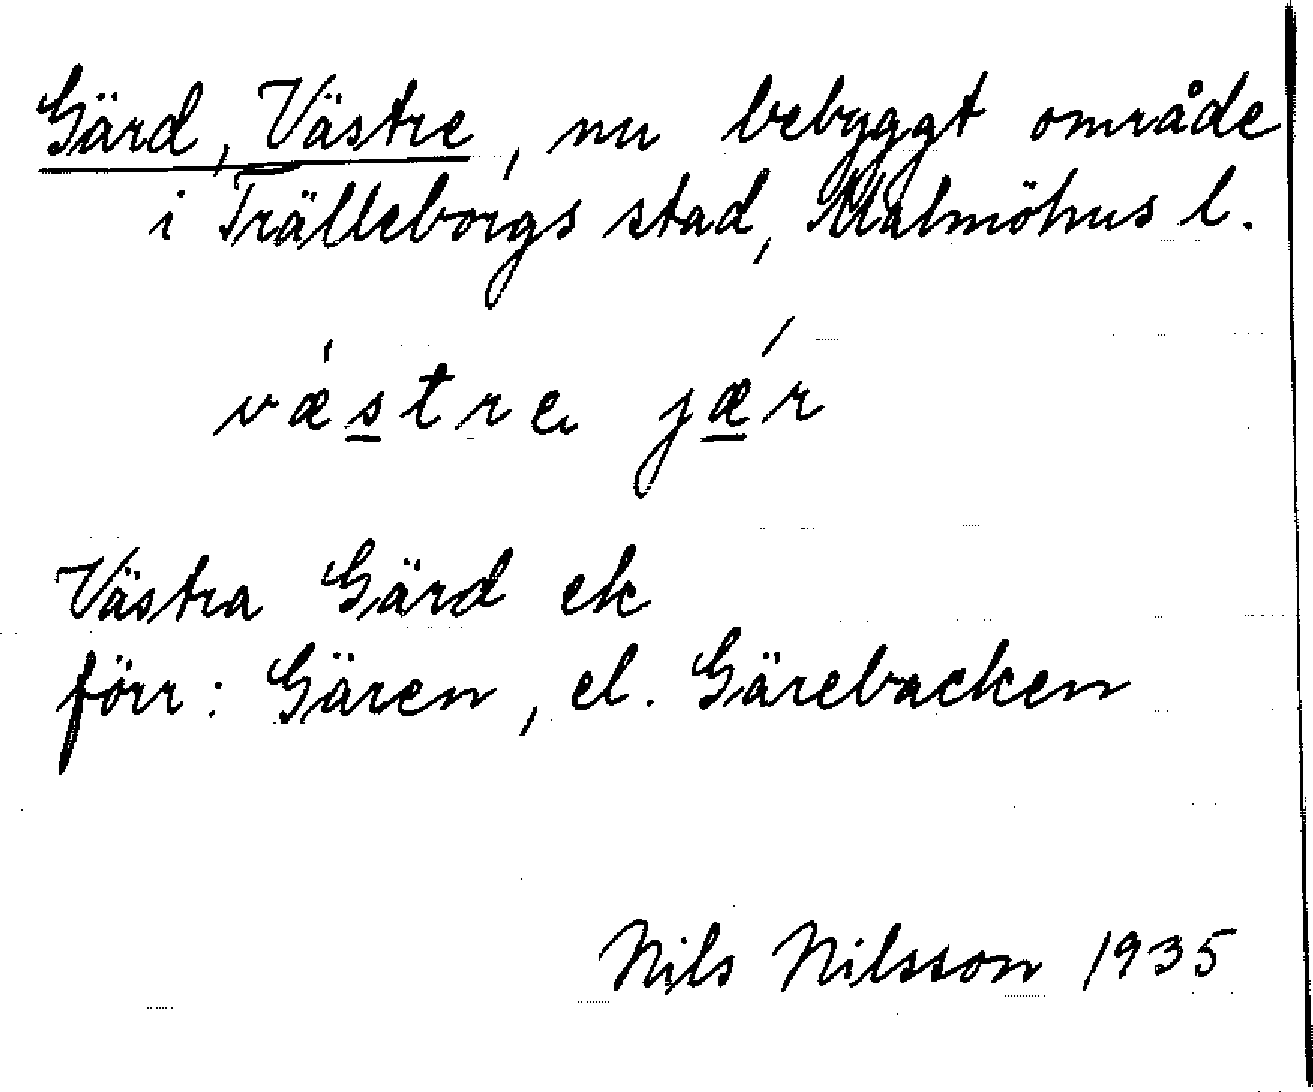 Gärd, Västre, nu bebyggt område
i Trälleborgs stad, Malmöhus l.
væ̍stre jǽ̗r
Västra Gärd ek
förr: Gären, el. Gärebacken
Nils Nilsson 1935